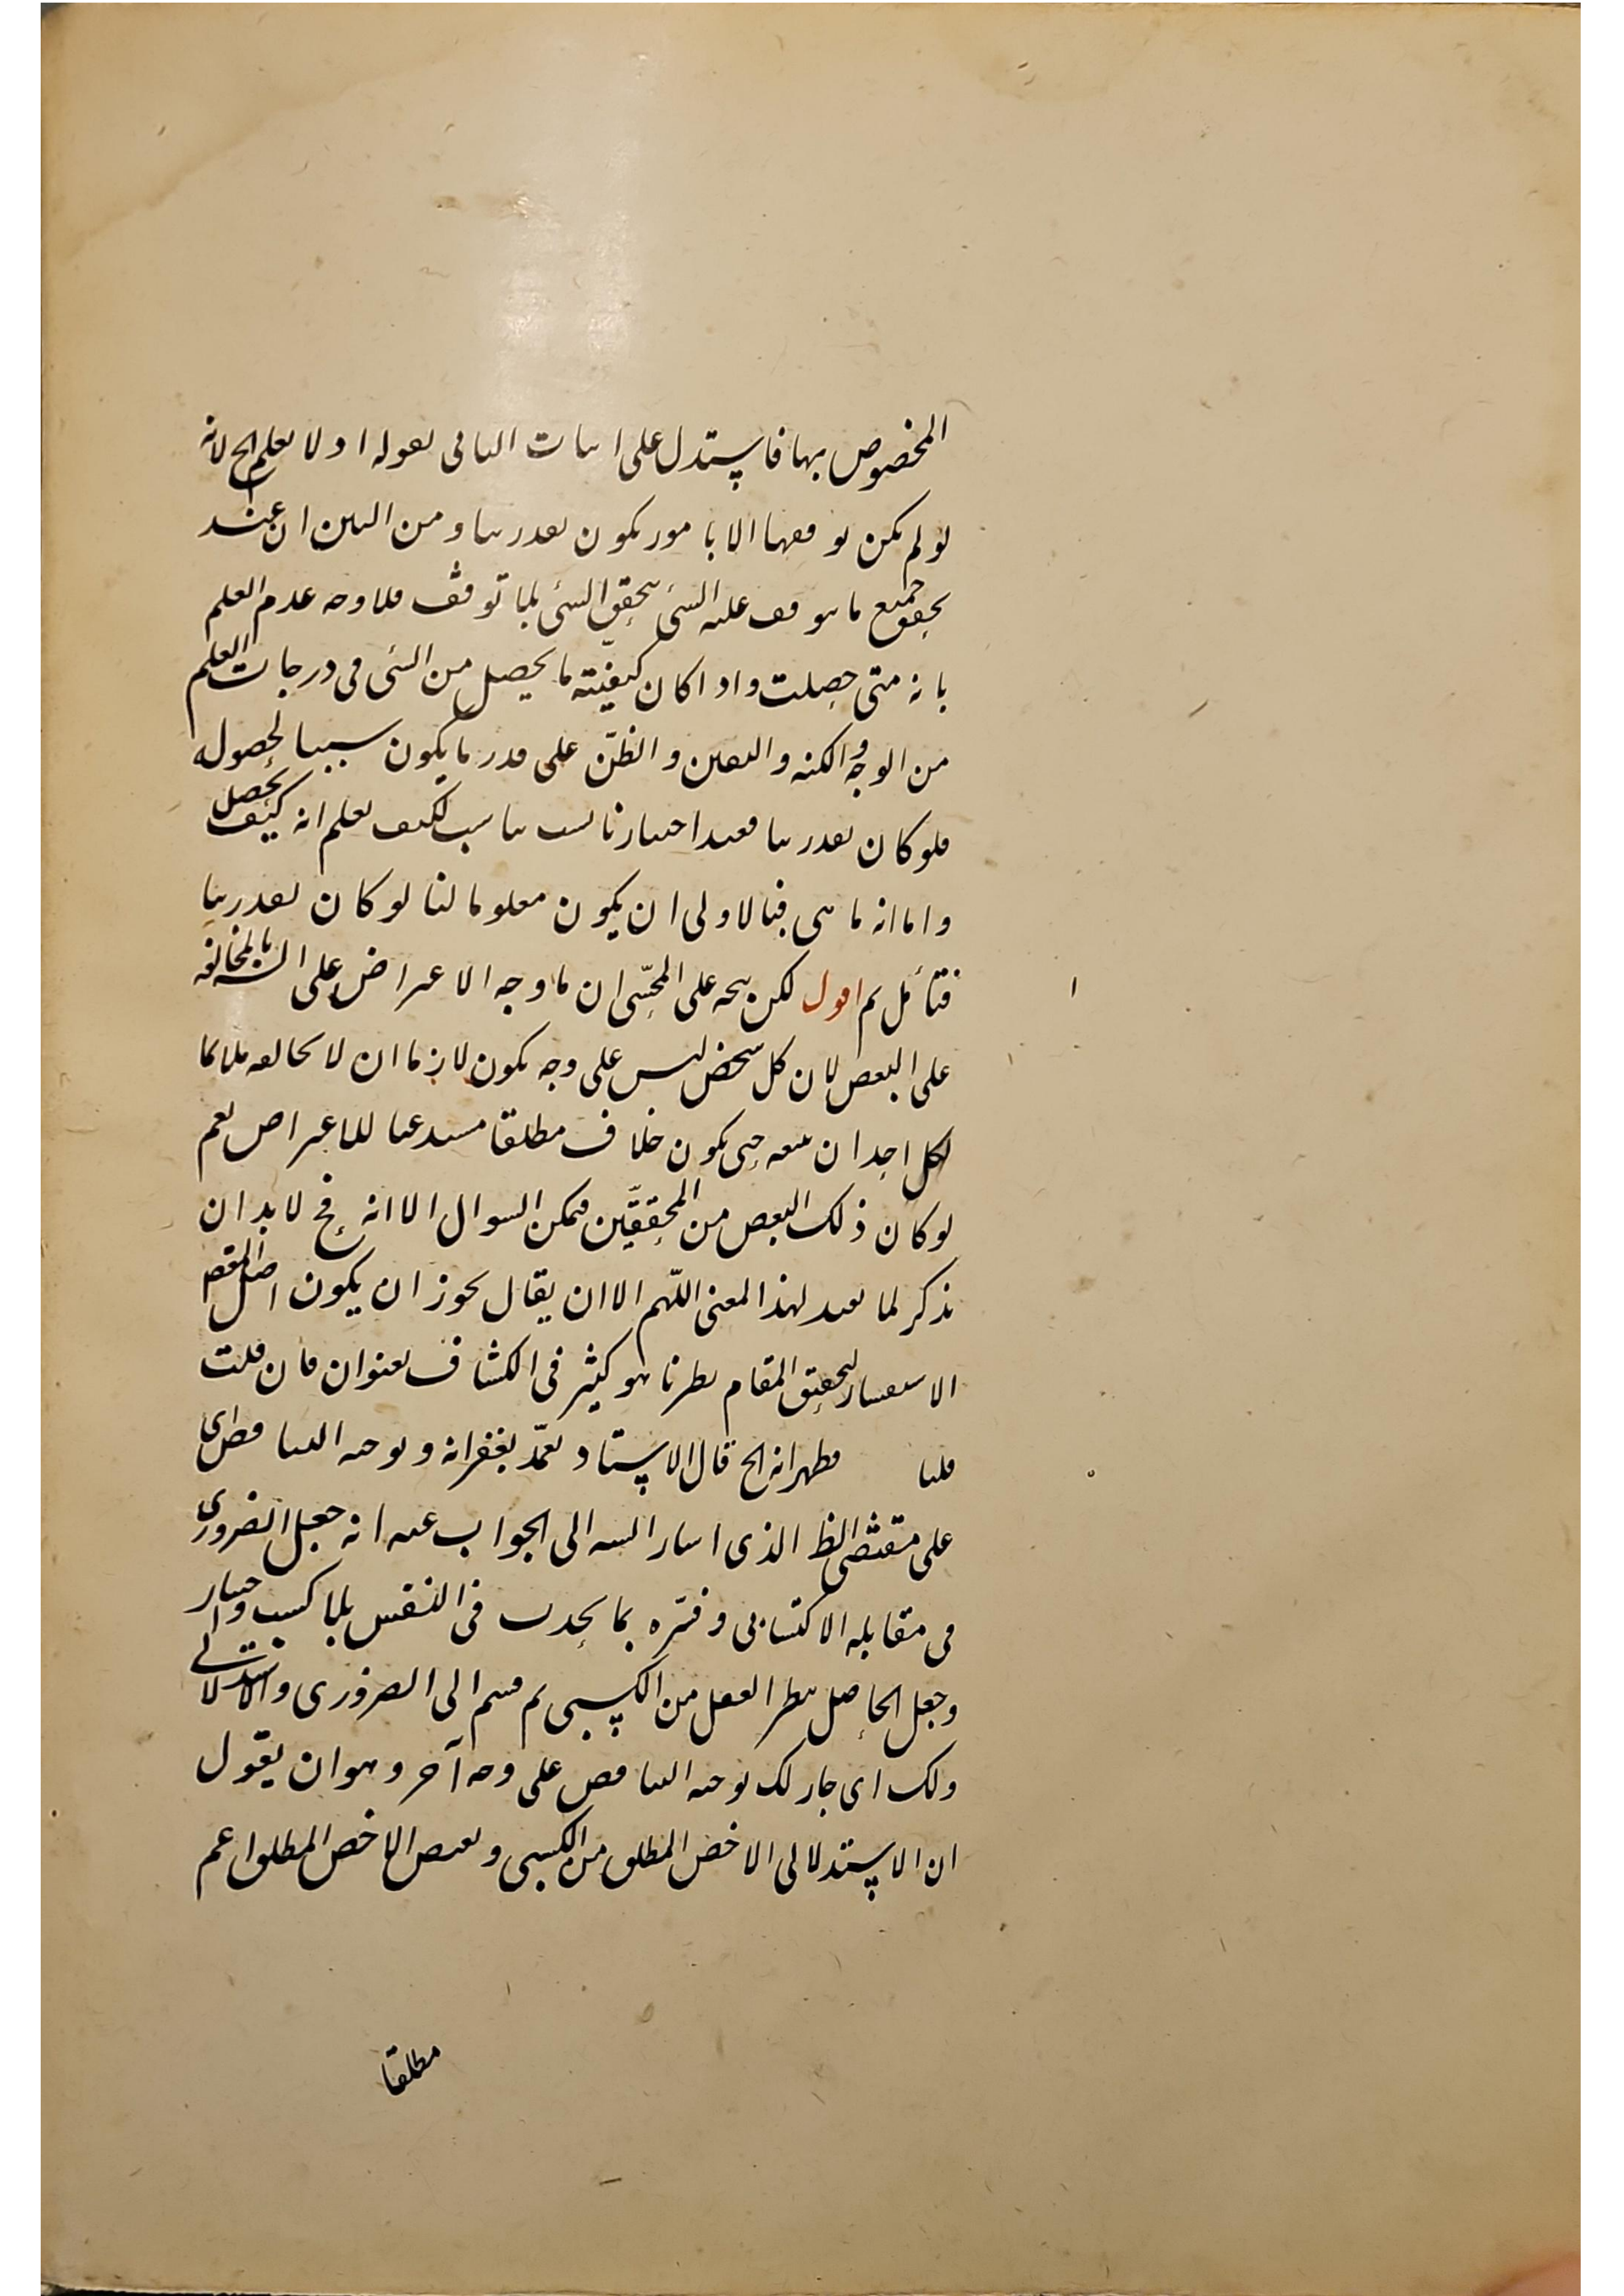 المخصوص بها فاستدل على اثبات الثانى بقوله اذ لا نعلم الخ لانه
لو لم يكن توقفها الا بامور يكون بقدرتنا ومن البين ان عند
تحقق جميع ما يتوقف عليه الشئ يتحقق الشئ بلا توقف فلا وجه عدم العلم
بانه متى حصلت واذا كان كيفيته ما يحصل من الشئ فى درجات العلم
من الوجه والكنه واليقين والظن على قدر ما يكون سببا لحصوله
فلو كان بقدرتنا فعند اختيارنا سبب لكيف نعلم انه كيف يحصل
واما انه ما هى فبالاولى ان يكون معلوما لنا لو كان بقدرتنا
فتأمل ثم اقول لكن يتجه على المحشى ان ما وجه الاعتراض على الش بالمخالفة
على البعض لان كل شخص ليس على وجه يكون لازما ان لا يخالفه ملاكا
لكل احد ان يتبعه حتى يكون خلاف مطلقا مستدعيا للاعتراض نعم
لو كان ذلك البعض من المحققين فيمكن السوال الا انه ح لا بد ان
يذكر لما يفيد لهذا المعنى اللهم الا ان يقال يجوز ان يكون اصل المقص
الاستفسار لتحقيق المقام نظرنا هو كثير فى الكشاف بعنوان فان قلت
قلنا فظهر انه الخ قال الاستاد تغمد بغفرانه وتوجيه التناقض اى
على مقتضى الظ الذى اشار اليه الى الجواب عنه انه جعل الضرورى
فى مقابلة الاكتسابى وفسره بما يحدث فى النفس بلا كسب واختيار
وجعل الحاصل بنظر العقل من الكسبى ثم قسم الى الضرورى والاستدلالى
ولك اى جاز لك توجيه التناقض على وجه آخر وهو ان يقول
ان الاستدلالى الاخص المطلق من الكسبى ونقيض الاخص المطلق اعم
مطلقا